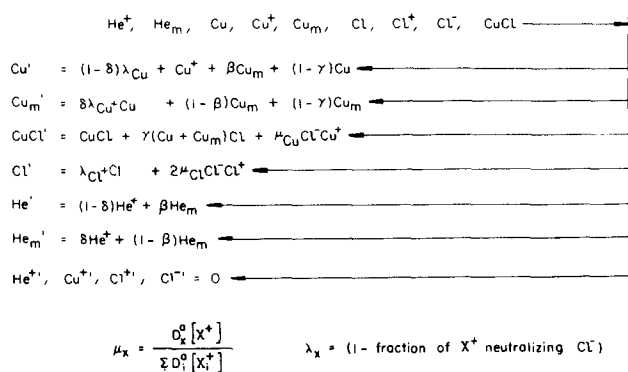 He⁺, He_m, Cu, Cu⁺, Cu_m, Cl, Cl⁺, Cl⁻, CuCl
Cu' = (1-δ)λ_Cu + Cu⁺ + βCu_m + (1-γ)Cu
Cu_m' = δλ_Cu+Cu + (1-β)Cu_m + (1-γ)Cu_m
CuCl' = CuCl + γ(Cu + Cu_m)Cl + μ_CuCl⁻Cu⁺
Cl' = λ_Cl+Cl + 2μ_ClCl⁻Cl⁺
He' = (1-δ)He⁺ + βHe_m
He_m' = δHe⁺ + (1-β)He_m
He⁺', Cu⁺', Cl⁺', Cl⁻' = O
μ_x = D_x^a [X⁺] / Σ_i D_i^a [X_i⁺] λ_x = (1- fraction of X⁺ neutralizing Cl⁻)